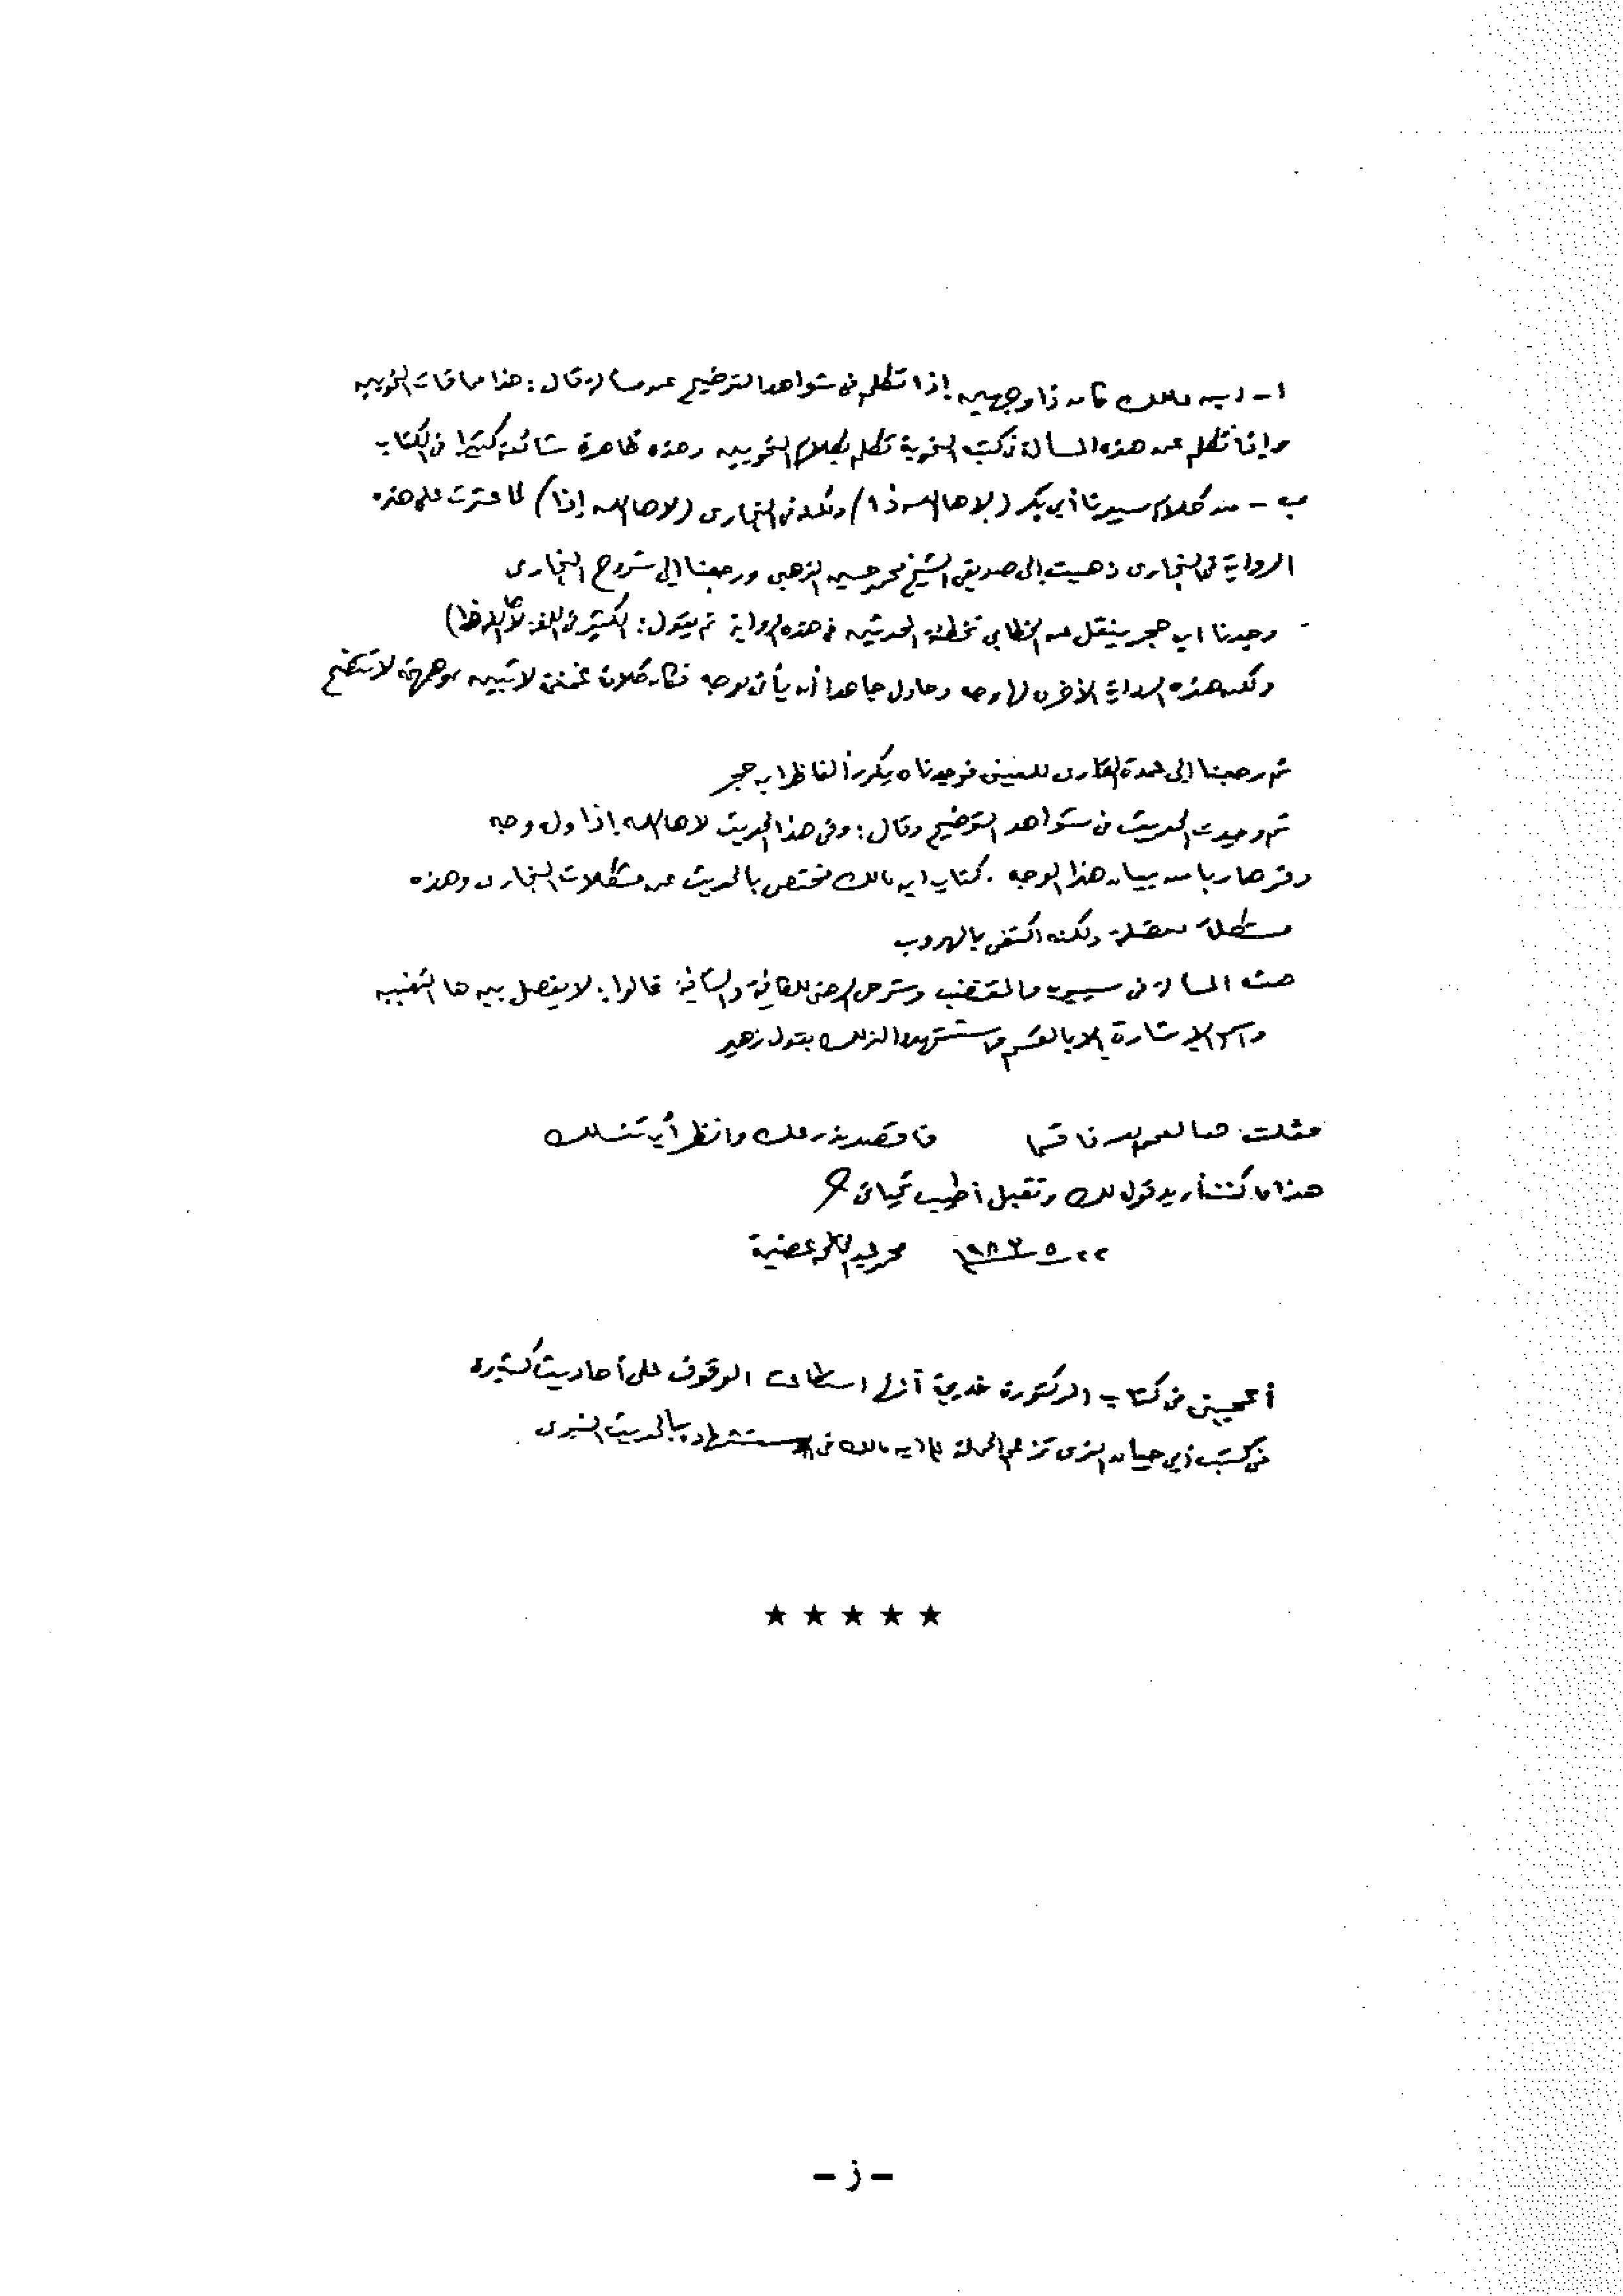 ا - ابن مالك كان ذا وجهين إذا تكلم في شواهد التوضيح عن مسألة قال : هذا مما فات النحويين
وإذا تكلم عن هذه المسألة في كتبه النحوية تكلم بكلام النحويين وهذه ظاهرة شائعة كثيرا في الكتاب
ب - من كلام سيدنا أبي بكر (لاها الله ذا) ولكنه في البخارى (لاها الله إذا) لما عثرت على هذه
الرواية في البخارى ذهبت إلى صديقى الشيخ محمد حسين الذهبي ورجعنا إلى شروح البخارى
وجدنا ابن حجر ينقل عن الخطابي تخطئة المحدثين في هذه الرواية ثم يقول : الكثير في اللغة لاها الله ذا)
ولكن هذه الرواية الأخرى لها وجه وحاول جاهدا أن يأتى بوجه فكان كلاما لا تتضح
ثم رجعنا إلى عمدة القارى للعينى فوجدناه يكرر ألفاظ ابن حجر
ثم وجدت الحديث في شواهد التوضيح وقال : وفى هذا الحديث لاها الله إذا وله وجه
وقد هاربا من بيان هذا الوجه . كتاب ابن مالك مختص بالحديث عن مشكلات البخارى وهذه
مشكلة معضلة ولكنه اكتفى بالهروب
المسألة في سيبويه والمقتضب وشرحى الرضى للكافية والشافية قالوا: لا يفصل بين ها التنبيه
واسم الإشارة إلا بالقسم واستشهدوا لذلك بقول زهير
لعمر الله ذا قسما فاقصد بذرعك وانظر أين تنسلك
هذا ما كنت أريد قوله لك وتقبل أطيب تحياتى
٢٢ ٥ ١٩٨٢ محمد عبد الخالق عضيمة
أعجبنى في كتاب الدكتورة خديجة أنها استطاعت الوقوف على أحاديث كثيرة
في كتب أبي حيان الذى تزعم الحملة على ابن مالك في استشهاده بالحديث النبوى
★ ★ ★ ★ ★
- ز -